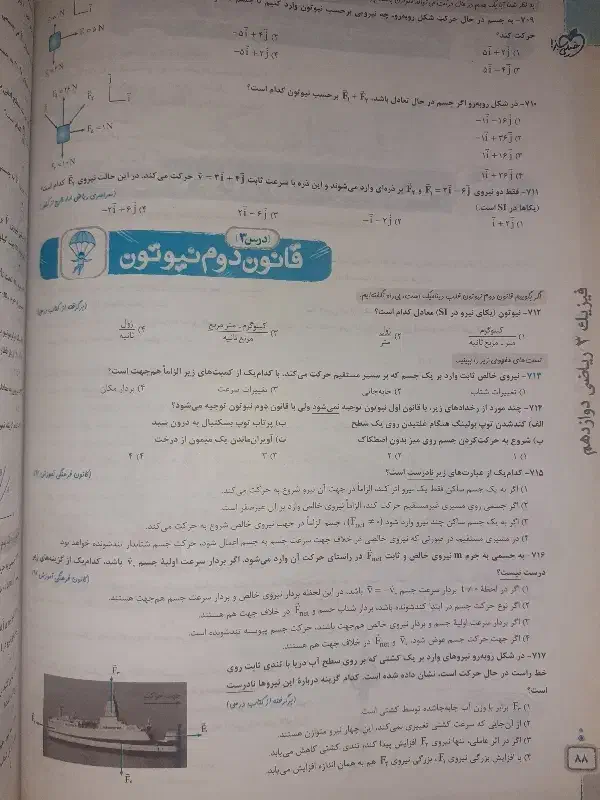 ۷۰۹- به جسم در حال حرکت شکل روبه‌رو، چه نیرویی برحسب نیوتون وارد کنیم تا جسم
حرکت کند؟
۱) ۵i + ۲j ۲) −۵i + ۴j
۳) ۵i − ۴j ۴) −۵i + ۲j
۷۱۰- در شکل روبه‌رو اگر جسم در حال تعادل باشد، F₁ + F₂ برحسب نیوتون کدام است؟
۱) −۱i − ۱۶j
۲) −۱i + ۲۶j
۳) ۱i + ۱۶j
۴) ۱i + ۲۶j
۷۱۱- فقط دو نیروی F₁ = ۲i − ۶j و F₂ بر ذره‌ای وارد می‌شوند و این ذره با سرعت ثابت v = ۳i + ۴j حرکت می‌کند. در این حالت نیروی F₂ کدام است؟
(یکاها در SI است.)
۱) i + ۲j ۲) −i − ۲j ۳) ۲i − ۶j ۴) −۲i + ۶j
درس ۳
قانون دوم نیوتون
اگر بگوییم قانون دوم نیوتون قلب دینامیک است، بی‌راه نگفته‌ایم.
۷۱۲- نیوتون (یکای نیرو در SI) معادل کدام است؟ (برگرفته از کتاب درسی)
۱) کیلوگرم / متر . مربع ثانیه ۲) ژول / متر ۳) کیلوگرم . متر مربع / مربع ثانیه ۴) ژول / ثانیه
تست‌های مفهومی زیر را ببینید.
۷۱۳- نیروی خالص ثابت وارد بر یک جسم که بر مسیر مستقیم حرکت می‌کند، با کدام‌یک از کمیت‌های زیر الزاماً هم‌جهت است؟
۱) تغییرات شتاب ۲) جابه‌جایی ۳) تغییرات سرعت ۴) بردار مکان
۷۱۴- چند مورد از رخدادهای زیر، با قانون اول نیوتون توجیه نمی‌شود ولی با قانون دوم نیوتون توجیه می‌شود؟
الف) کندشدن توپ بولینگ هنگام غلتیدن روی یک سطح ب) پرتاب توپ بسکتبال به درون سبد
پ) شروع به حرکت‌کردن جسم روی میز بدون اصطکاک ت) آویزان‌ماندن یک میمون از درخت
۱) ۱ ۲) ۲ ۳) ۳ ۴) ۴
۷۱۵- کدام‌یک از عبارت‌های زیر نادرست است؟ (کانون فرهنگی آموزش)
۱) اگر به یک جسم ساکن فقط یک نیرو اثر کند، الزاماً در جهت آن نیرو شروع به حرکت می‌کند.
۲) اگر جسمی روی مسیری غیرمستقیم حرکت کند، الزاماً نیروی خالص وارد بر آن غیرصفر است.
۳) اگر به یک جسم ساکن چند نیرو وارد شود (F_net ≠ ۰)، جسم الزاماً در جهت نیروی خالص شروع به حرکت می‌کند.
۴) در مسیری مستقیم، در صورتی که نیروی خالصی در خلاف جهت سرعت جسم به جسم اعمال شود، حرکت جسم شتابدار تندشونده خواهد بود.
۷۱۶- به جسمی به جرم m نیروی خالص و ثابت F_net در راستای حرکت آن وارد می‌شود. اگر بردار سرعت اولیهٔ جسم v₀ باشد، کدام‌یک از گزینه‌های زیر
درست نیست؟ (کانون فرهنگی آموزش)
۱) اگر در لحظهٔ t ≠ ۰ بردار سرعت جسم v = −v₀ باشد، در این لحظه بردار نیروی خالص و بردار سرعت جسم هم‌جهت هستند.
۲) اگر نوع حرکت جسم در ابتدا کندشونده باشد، بردار شتاب جسم و F_net در خلاف جهت هم هستند.
۳) اگر بردار سرعت اولیهٔ جسم و بردار نیروی خالص هم‌جهت باشند، حرکت جسم پیوسته تندشونده است.
۴) اگر جهت حرکت جسم عوض شود، v₀ و F_net در خلاف جهت هم هستند.
۷۱۷- در شکل روبه‌رو نیروهای وارد بر یک کشتی که بر روی سطح آب دریا با تندی ثابت روی
خط راست در حال حرکت است، نشان داده شده است. کدام گزینه دربارهٔ این نیروها نادرست
است؟ (برگرفته از کتاب درسی)
۱) F₂ برابر با وزن آب جابه‌جاشده توسط کشتی است.
۲) از آن‌جایی که سرعت کشتی تغییری نمی‌کند، این چهار نیرو متوازن هستند.
۳) اگر در اثر عاملی، تنها نیروی F₃ افزایش پیدا کند، تندی کشتی کاهش می‌یابد.
۴) با افزایش بزرگی نیروی F₁، بزرگی نیروی F₂ هم به همان اندازه افزایش می‌یابد.
فیزیک ۳ ریاضی دوازدهم
۸۸